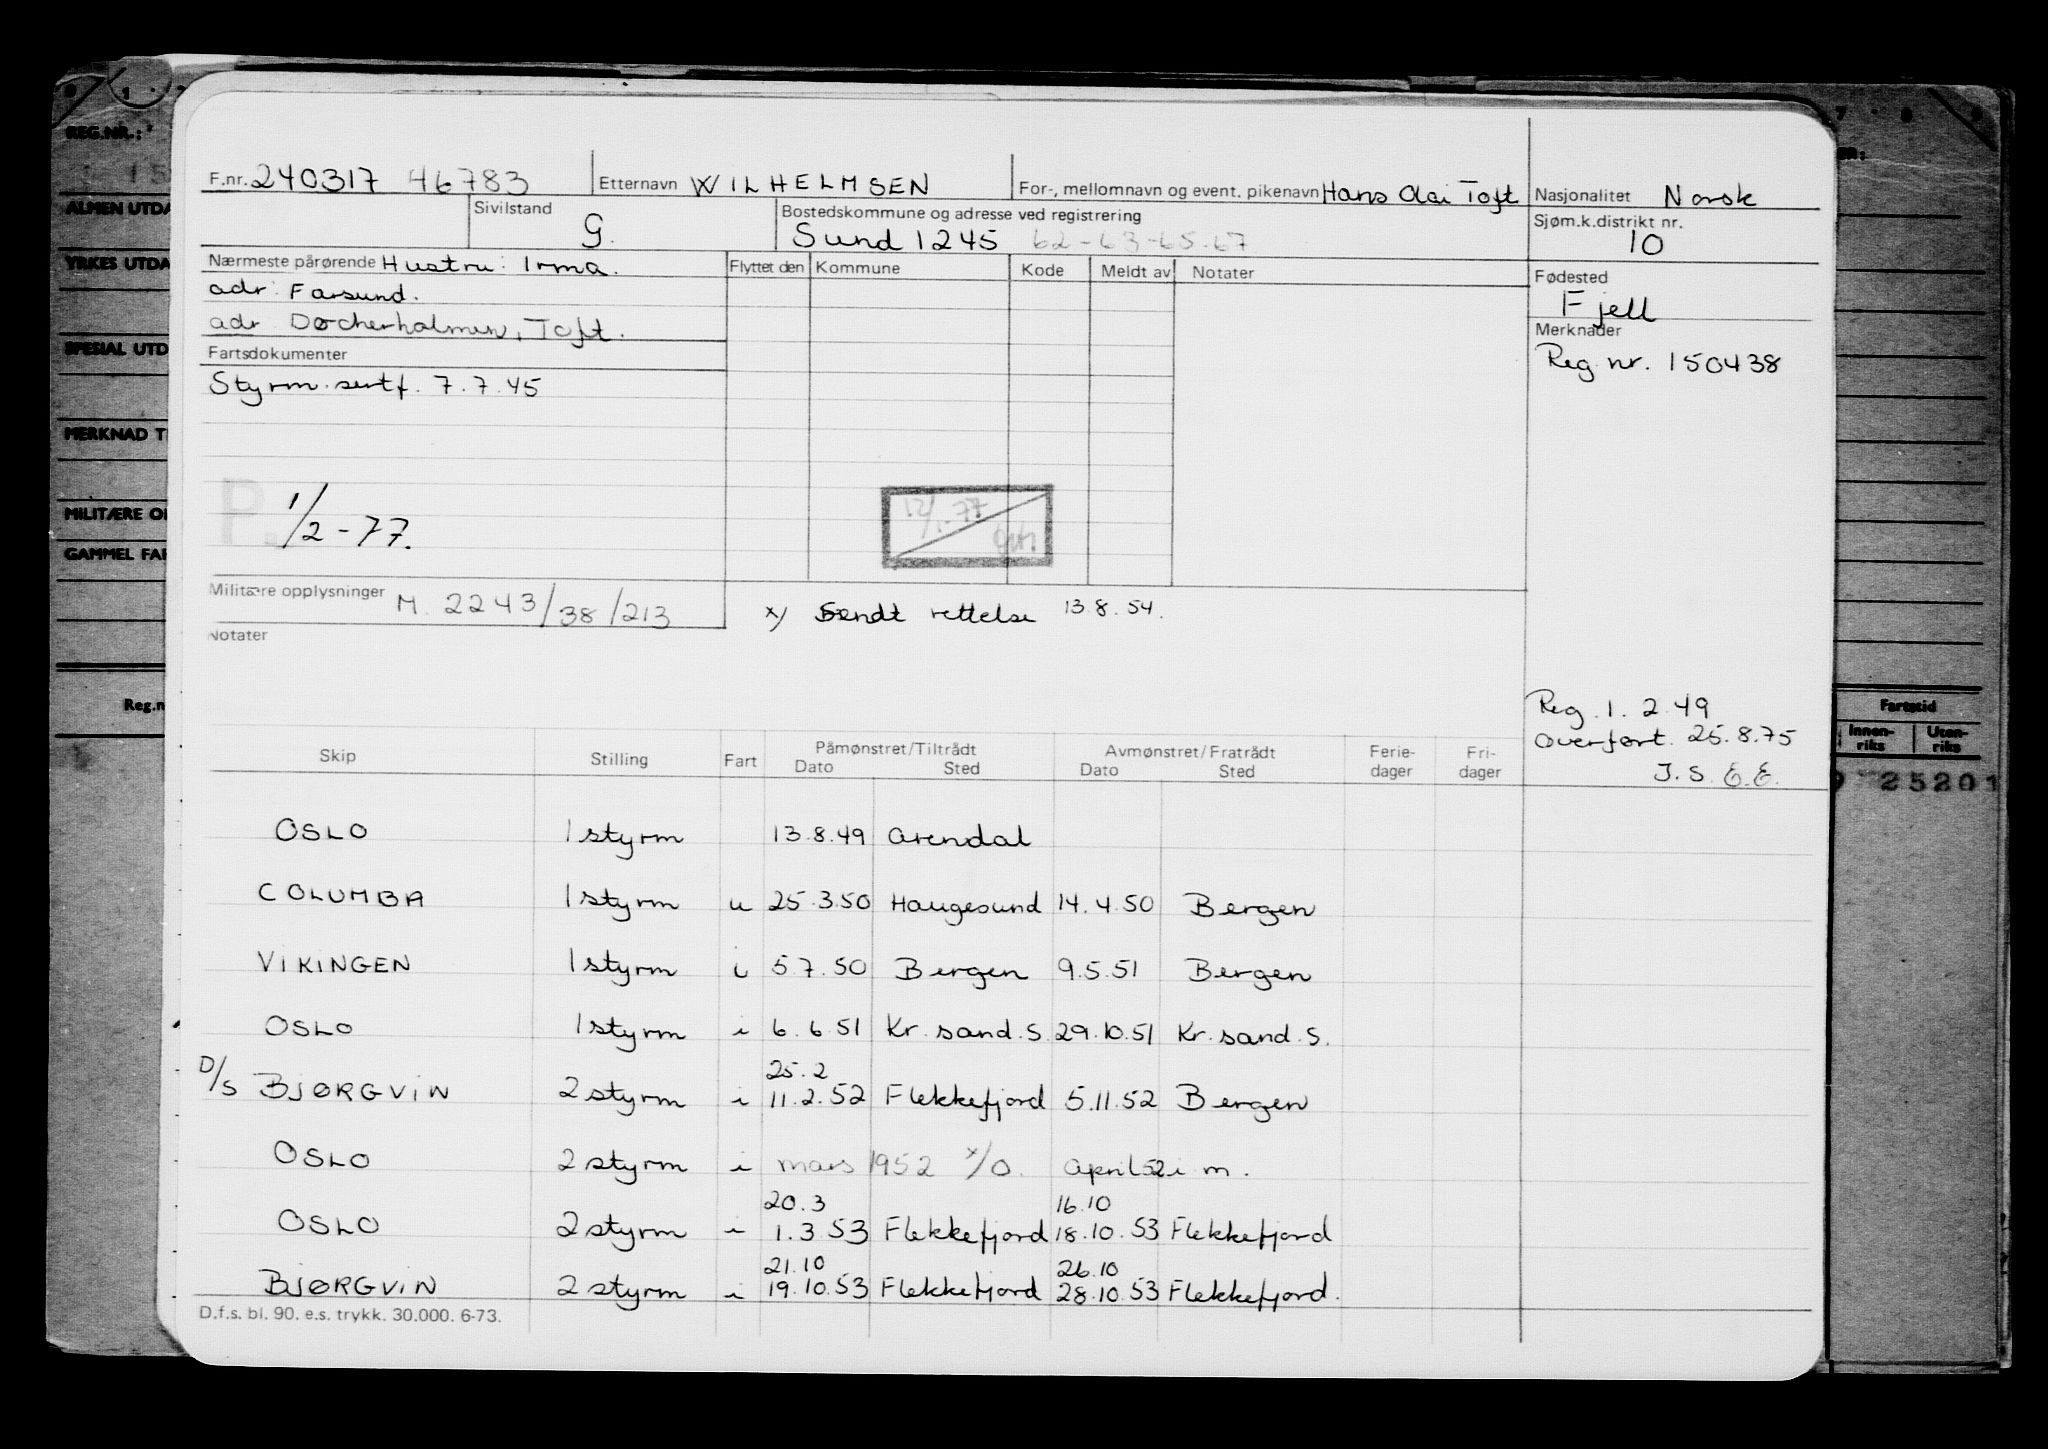 REG.NR.:
ALMEN UTDA
YRKES UTDA
SPESIAL UTD
MERKNAD T
MILITÆRE O
GAMMEL FA
Reg.n
F.nr. 240317 46783 Etternavn WILHELMSEN For-, mellomnavn og event. pikenavn Hans Toft Nasjonalitet Norsk
Sivilstand G. Bostedskommune og adresse ved registrering Sjøm.k.distrikt nr.
Sund 1245 62-63-65-67 10
Nærmeste pårørende Hustru: Irma. Flyttet den Kommune Kode Meldt av Notater Fødested
adr: Farsund. Fjell
adr Døcherholmen, Toft. Merknader
Fartsdokumenter Reg. nr. 150438
Styrm. sertf. 7.7.45
P. 1/2-77. 12/1-77
Militære opplysninger M. 2243/38/213 x) Sendt rettelse 13.8.54.
Notater
Reg. 1. 2.49
Overført. 25.8.75
J.S. E.E.
Skip Stilling Fart Påmønstret/Tiltrådt Avmønstret/Fratrådt Ferie- Fri-
Dato Sted Dato Sted dager dager
OSLO 1 styrm 13.8.49 Arendal
COLUMBA 1 styrm u 25.3.50 Haugesund 14.4.50 Bergen
VIKINGEN 1 styrm i 5.7.50 Bergen 9.5.51 Bergen
OSLO 1 styrm i 6.6.51 Kr. sand. S 29.10.51 Kr. sand. S.
25.2
D/S BJØRGVIN 2 styrm i 11.2.52 Flekkefjord 5.11.52 Bergen
OSLO 2 styrm i mars 1952 x/O. April 52 i m.
20.3 16.10
OSLO 2 styrm i 1.3.53 Flekkefjord 18.10.53 Flekkefjord
21.10 26.10
BJØRGVIN 2 styrm i 19.10.53 Flekkefjord 28.10.53 Flekkefjord.
D.f.s. bl. 90. e.s. trykk. 30.000. 6-73.
Fartstid
Innen-riks Uten-riks
25201